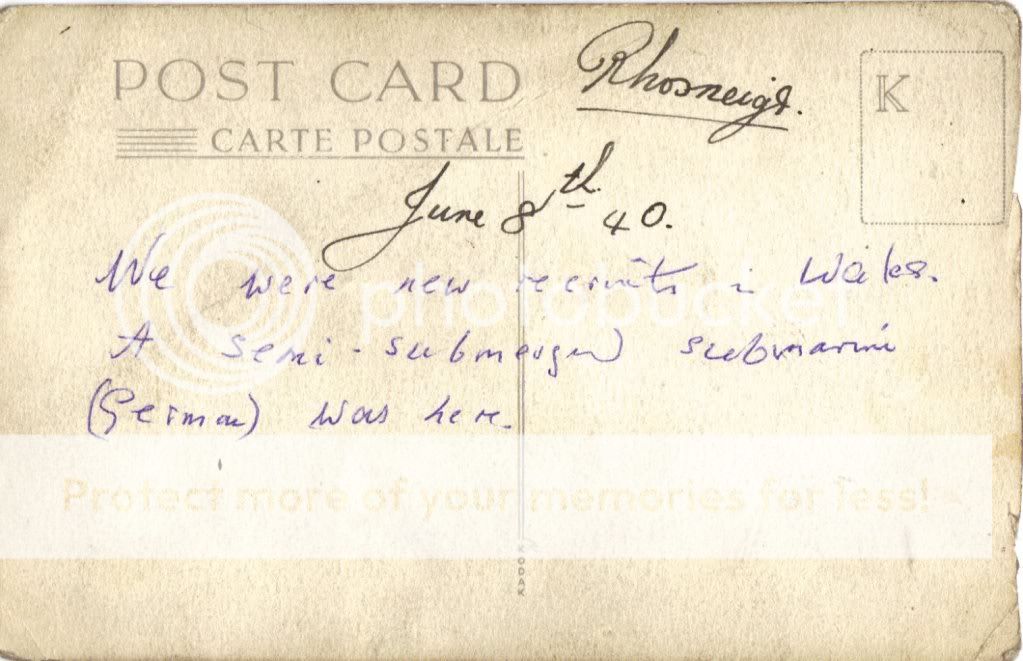 POST CARD
CARTE POSTALE
Rhosneigr.
K
June 8th 40.
We were new recruits in Wales.
A semi-submerged submarine
(German) was here.
photobucket
Protect more of your memories for less!
KODAK